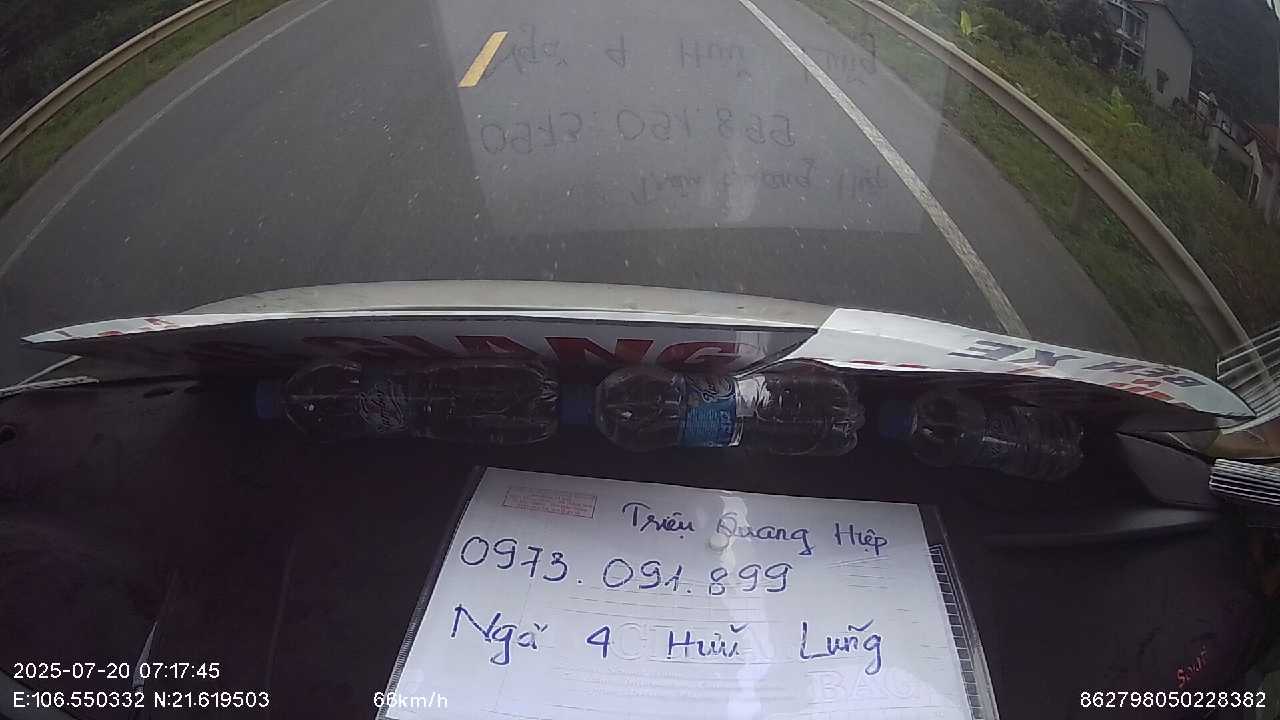 GIANG
BẾN XE
Triệu Quang Hiệp
0973.091.899
Ngã 4 Hữu Lũng
BẮC
2025-07-20 07:17:45
E:106.550332 N:21619503
68km/h
862798050228382